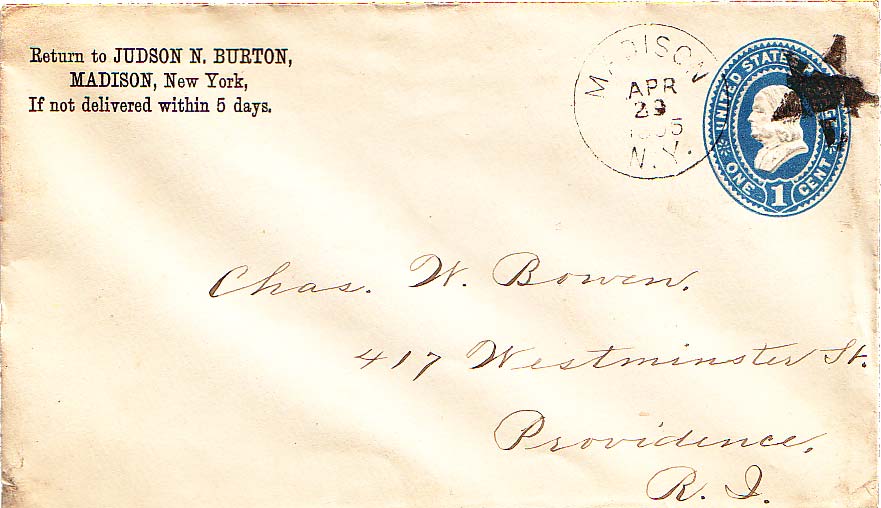 Return to JUDSON N. BURTON,
MADISON, New York,
If not delivered within 5 days.
MADISON
APR
29
N.Y.
UNITED STATES
ONE 1 CENT
Chas. W. Bowen.
417 Westminster St.
Providence,
R. I.